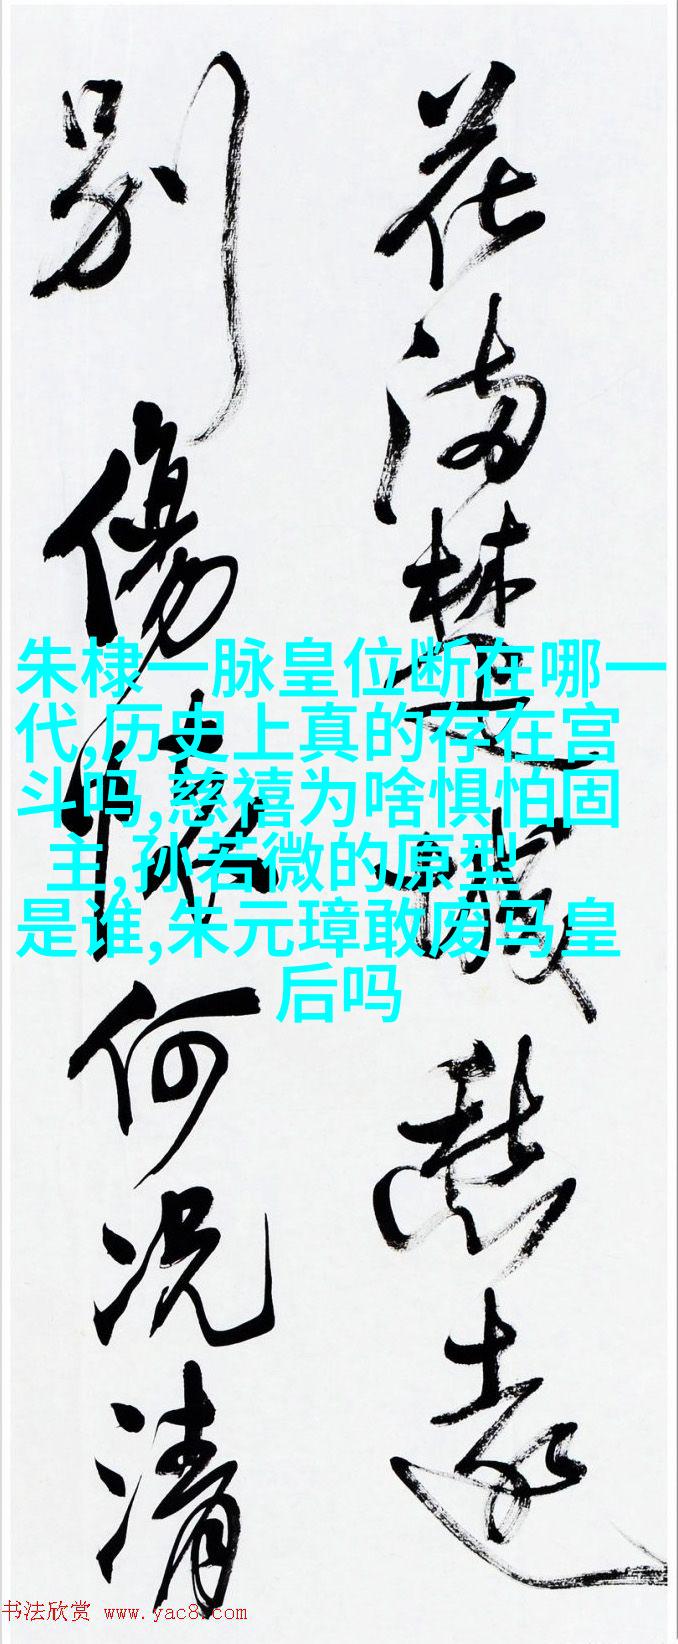 花滿楚城愁遠
别傷懷何況清
朱棣一脉皇位断在哪一
代,历史上真的存在宫
斗吗,慈禧为啥惧怕固
主,孙若微的原型
是谁,朱元璋敢废马皇
后吗
书法欣赏 www.yac8.com